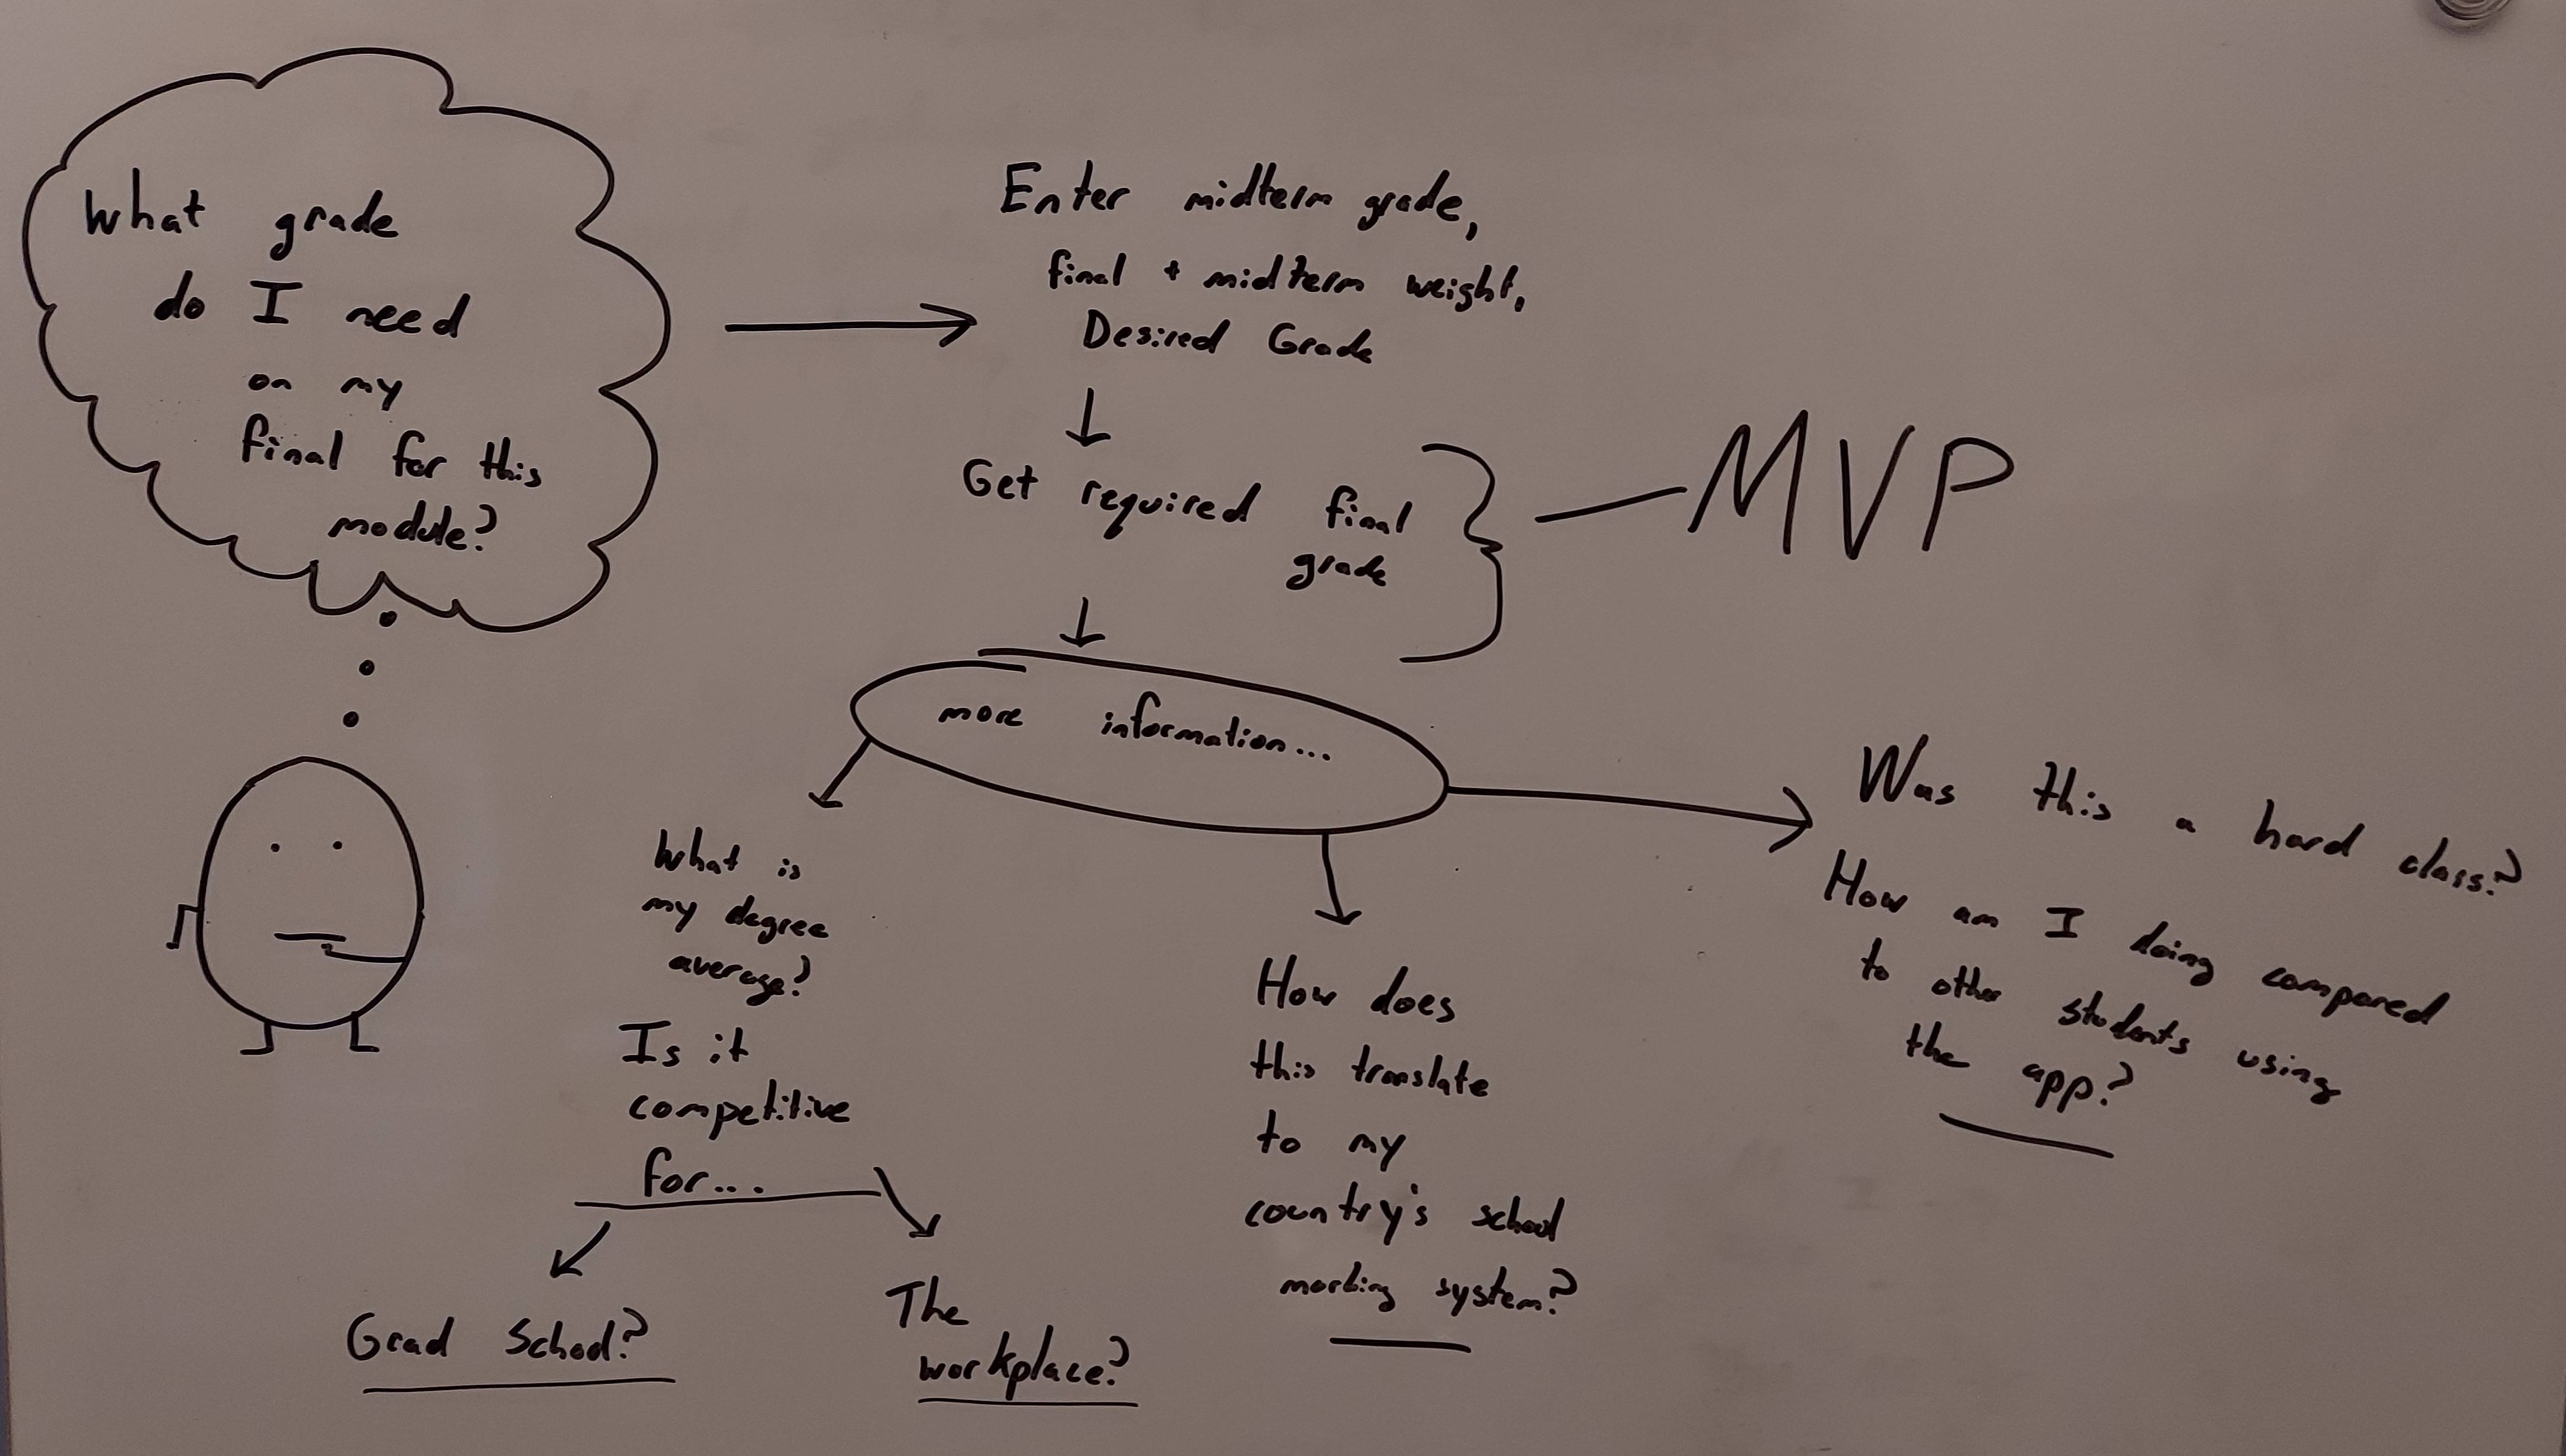 What grade
do I need
on my
final for this
module?
Enter midterm grade,
final + midterm weight,
Desired Grade
Get required final
grade
MVP
more information...
What is
my degree
average?
Is it
competitive
for...
Grad School?
The
workplace?
How does
this translate
to my
country's school
marking system?
Was this a hard class?
How am I doing compared
to other students using
the app?